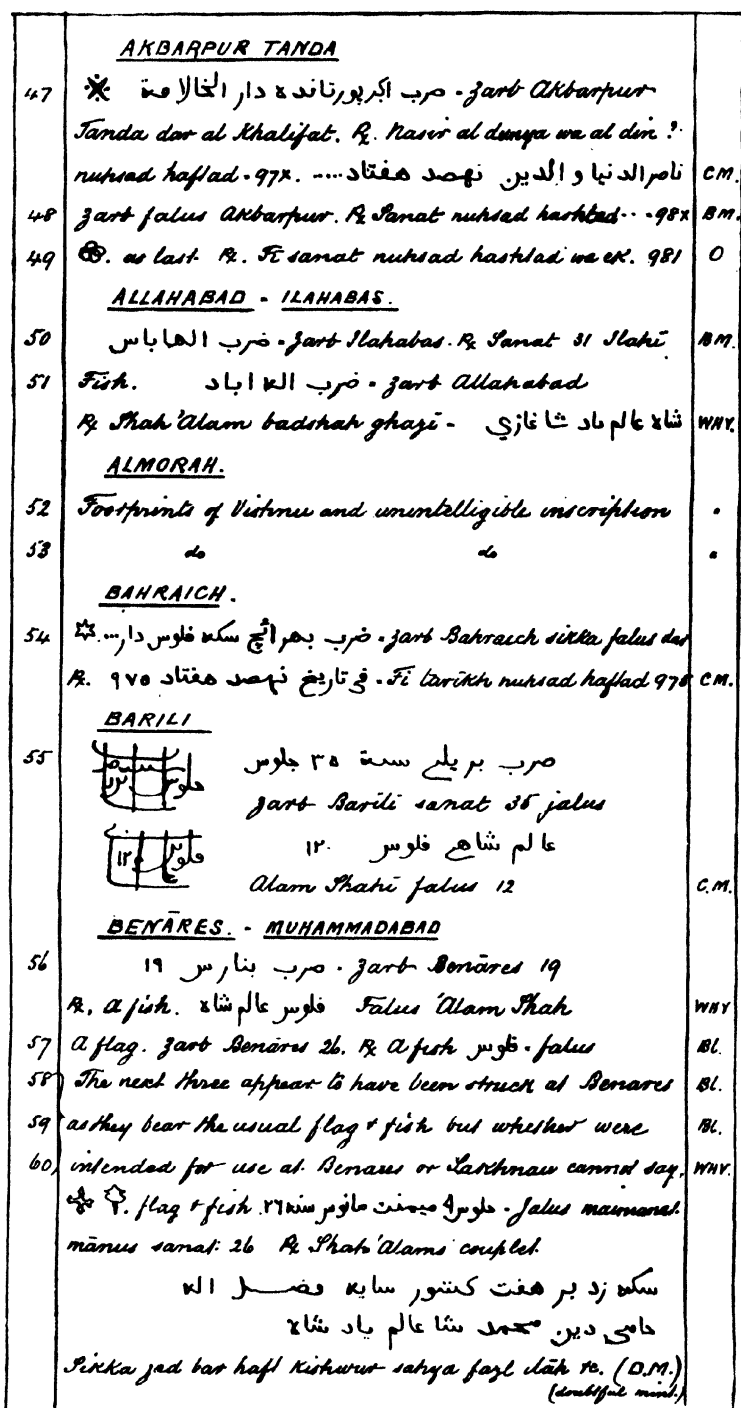 AKBARPUR TANDA
47 ضرب اکبرپور تانده دار الخلافة - Zarb Akbarpur
Tanda dar al Khalifat. R. Nasir al dunya wa al din ?
nuhsad haftad - 97x. .... ناصر الدنيا و الدين نهصد هفتاد CM.
48 Zarb falus Akbarpur. R. Sanat nuhsad hashtad ... 98x BM.
49 as last. R. Fi sanat nuhsad hashtad wa ek. 981 O
ALLAHABAD - ILAHABAS.
50 ضرب الهاباس - Zarb Ilahabas. R. Sanat 31 Ilahi BM.
51 Fish. ضرب اله اباد - Zarb Allahabad
R. Shah 'Alam badshah ghazi - شاه عالم باد شا غازي WHV.
ALMORAH.
52 Footprints of Vishnu and unintelligible inscription "
53 do do "
BAHRAICH.
54 ضرب بهرائچ سکه فلوس دار... - Zarb Bahraich sikka falus dar
R. في تاريخ نهصد هفتاد ٩٧٥ - Fi tarikh nuhsad haftad 975 CM.
BARILI
55 ضرب بريلے سنة ٣٥ جلوس
Zarb Barili sanat 35 jalus
عالم شاهے فلوس ١٢٠
Alam Shahi falus 12 C.M.
BENĀRES. - MUHAMMADABAD
56 ضرب بنارس ١٩ - Zarb Benāres 19
R. A fish. فلوس عالم شاه Falus 'Alam Shah WHV
57 A flag. Zarb Benāres 26. R. A fish فلوس - falus Bl.
58 The next three appear to have been struck at Benares Bl.
59 as they bear the usual flag & fish but whether were Bl.
60 intended for use at Benares or Lakhnau cannot say, WHV.
flag & fish جلوس ميمنت مانوس سنه ٢٦ - Jalus maimanat
mānus sanat 26 R. Shah 'Alams couplet
سکه زد بر هفت کشور سايه فضل اله
حامی دين محمد شا عالم باد شاه
Sikka zad bar haft kishwur sahya fazl ilāh &c. (D.M.)
(doubtful mint.)